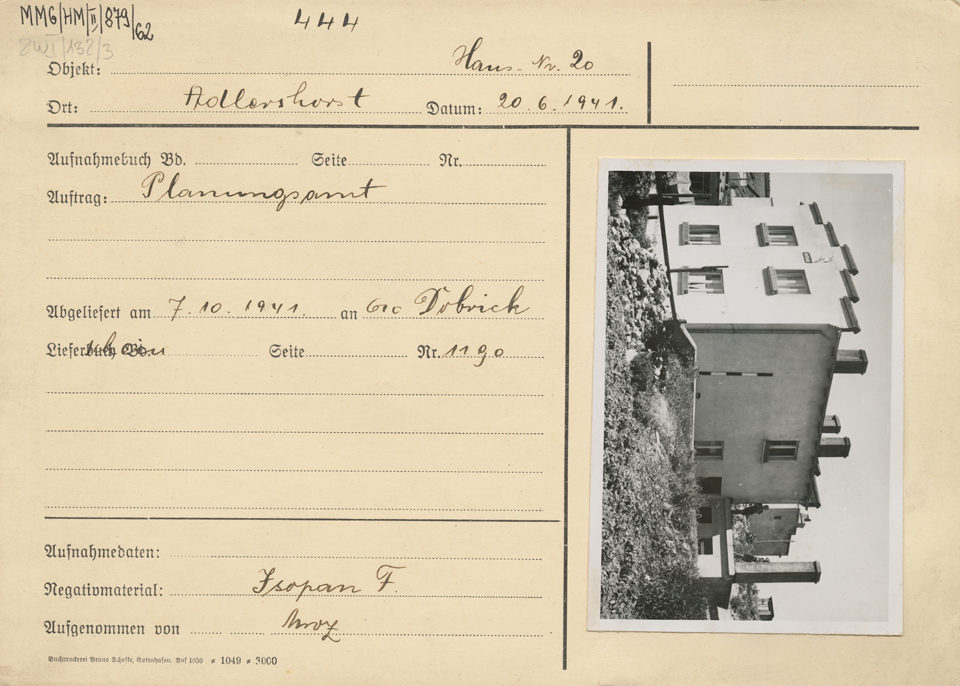 MMG/HM/II/879/62
444
ZWI/132/3
Objekt: Haus-Nr. 20
Ort: Adlershorst Datum: 20.6.1941.
Aufnahmebuch Bd. Seite Nr.
Auftrag: Planungsamt
Abgeliefert am 7.10.1941. an Dobrick
Lieferbuch Bd. Seite Nr. 1190
Aufnahmedaten:
Negativmaterial: Isopan F.
Aufgenommen von Mroz
Buchdruckerei Bruno Scheffke, Gotenhafen. Ruf 1950 * 1049 * 3000